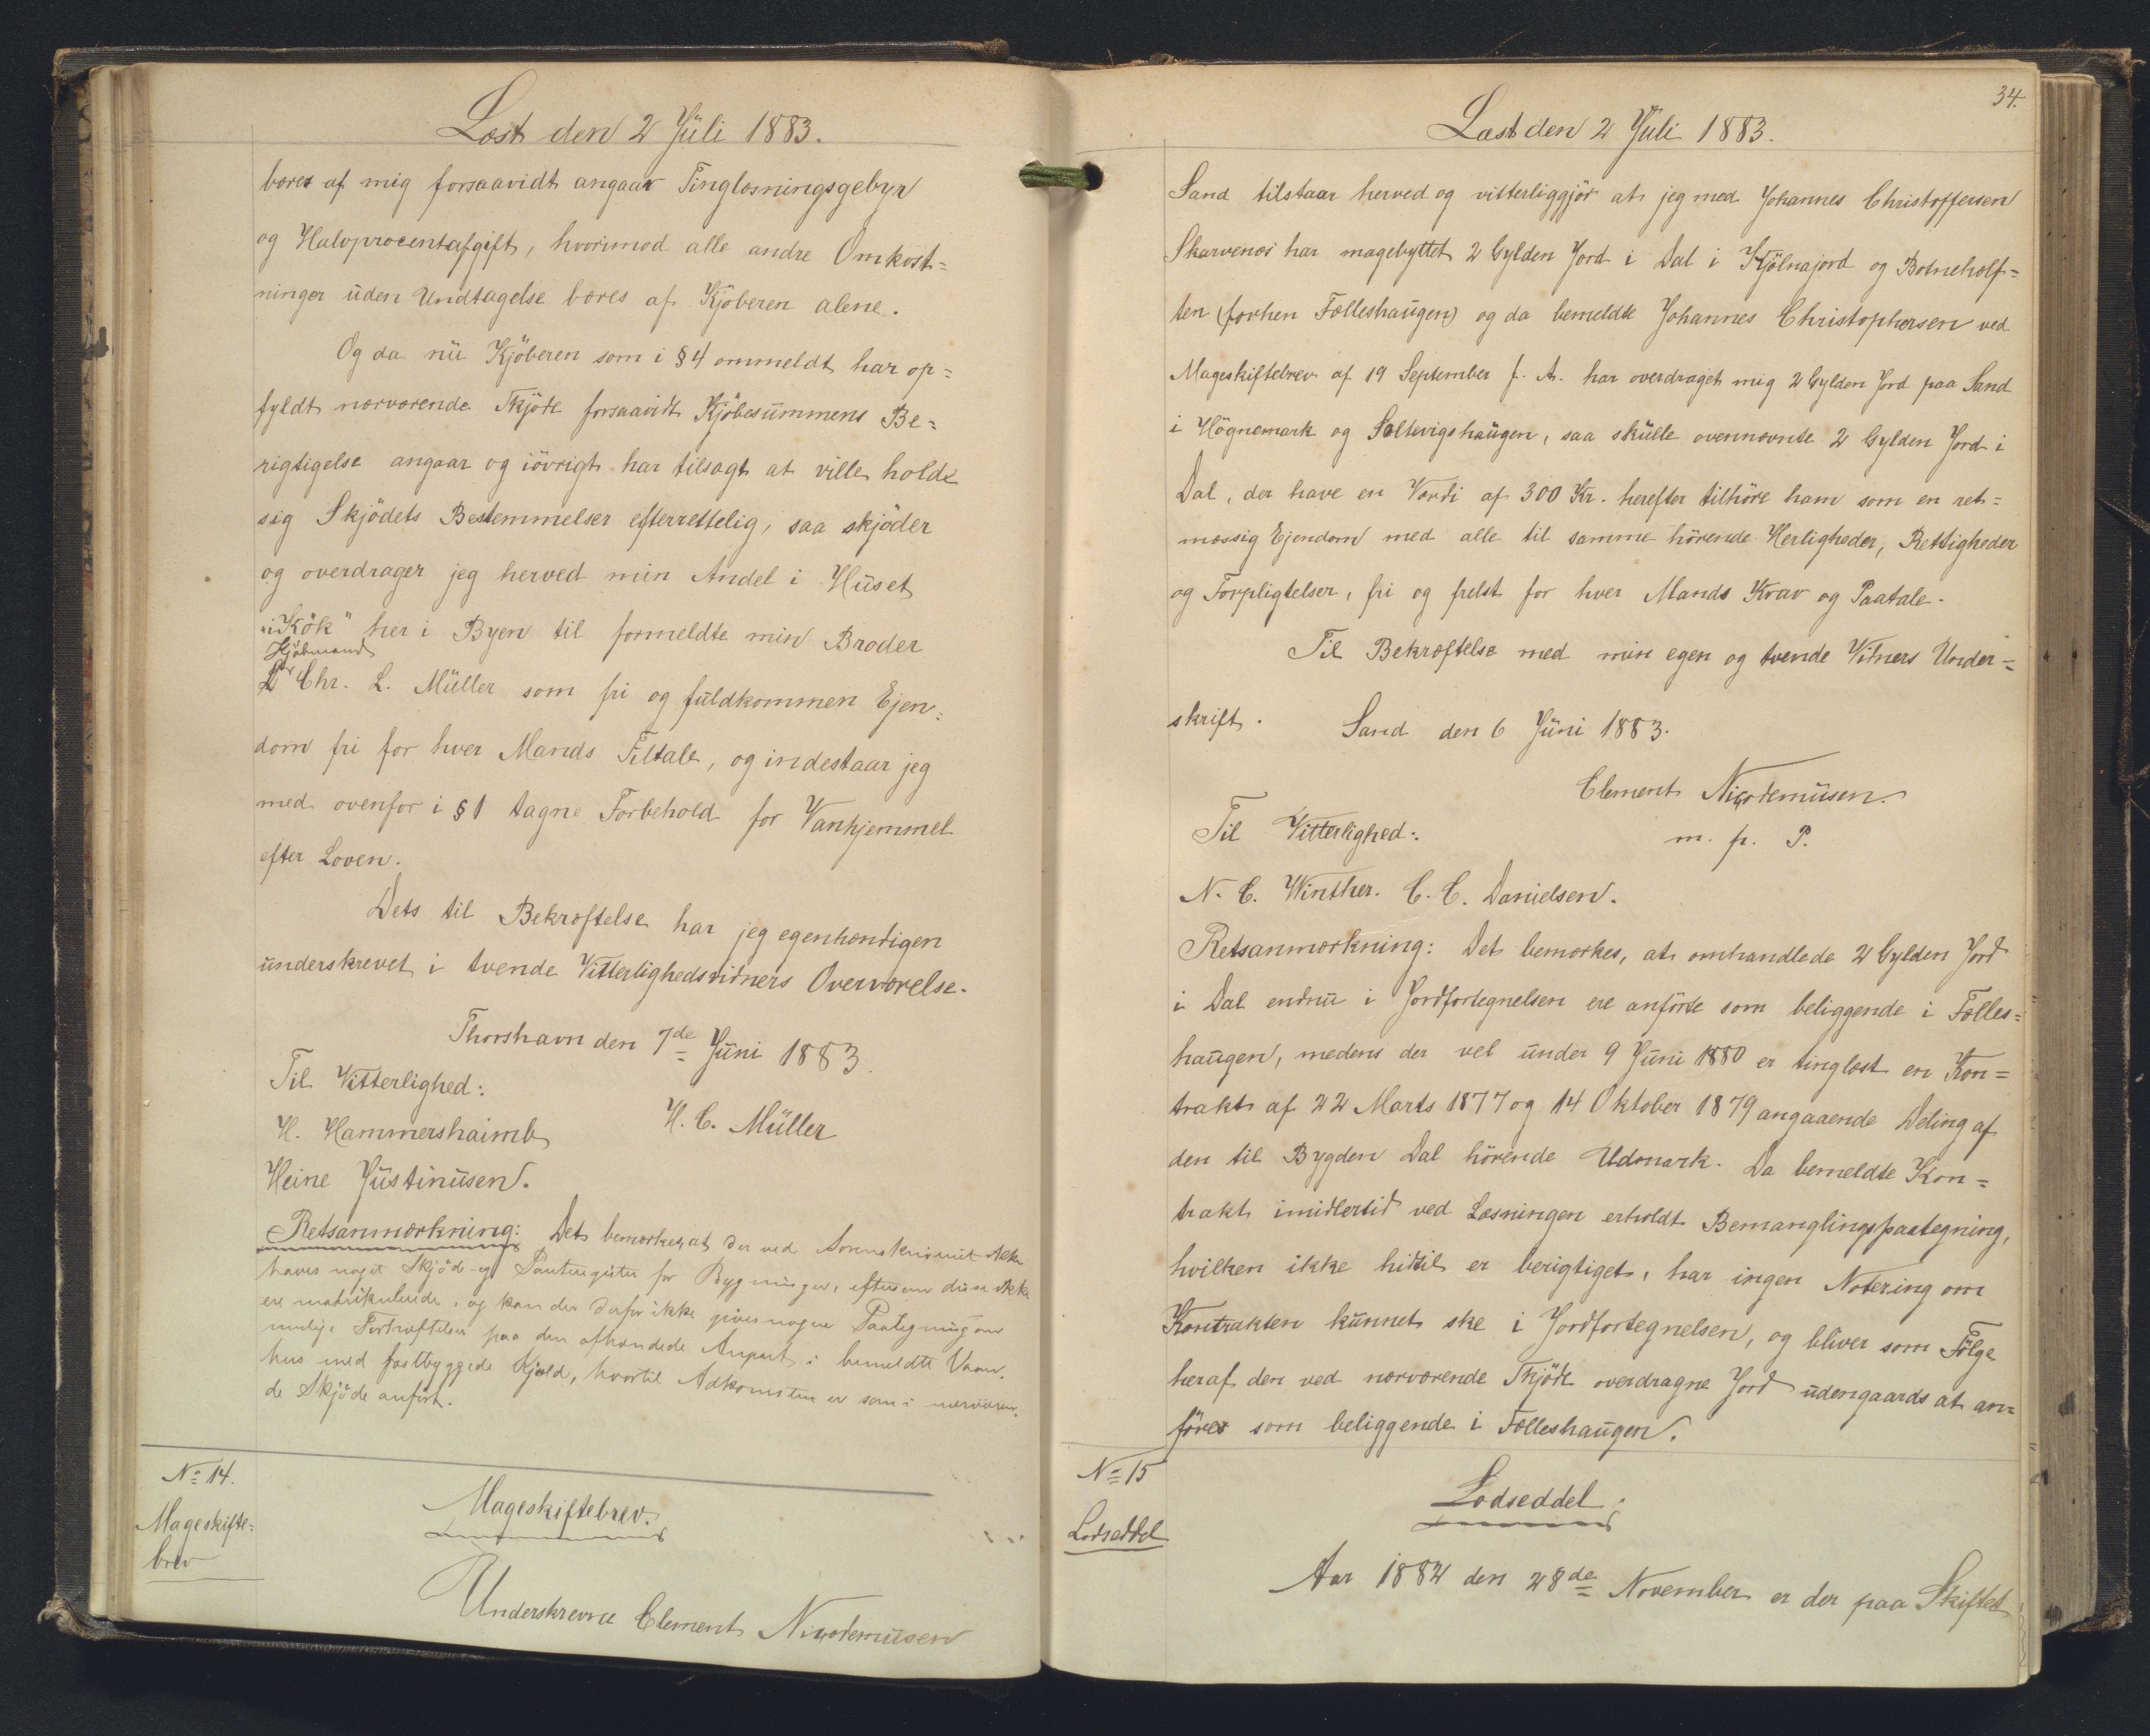 Læst den 2 Juli 1883.
bæres af mig forsaavidt angaar Tinglæsningsgebyr
og Halvprocentafgift, hvorimod alle andre Omkost=
ninger uden Undtagelse bæres af Kjöberen alene.
Og da nu Kjöberen som i § 4 ommeldt har op=
fyldt nærværende Skjöde forsaavidt Kjöbesummens Be=
rigtigelse angaar og iövrigt har tilsagt at ville holde
sig Skjödets Bestemmelser efterrettelig, saa skjöder
og overdrager jeg herved min Andel i Huset
"i Kök" her i Byen til formeldte min Broder
Kjöbmand
Chr. L. Müller som fri og fuldkommen Ejen=
dom fri for hver Mands Tiltale, og indestaar jeg
med ovenfor i § 1 tagne Forbehold for Vanhjemmel
efter Loven.
Dets til Bekræftelse har jeg egenhændigen
underskrevet i tvende Vitterlighedsvidners Overværelse.
Thorshavn den 7de Juni 1883.
Til Vitterlighed:
H. C. Müller
H. Hammershaimb
Heine Justinusen.
Retsanmærkning: Det bemærkes, at der ved Sorenskriveriet ikke
haves noget Skjöde- og Panteregister for Bygninger, eftersom disse ikke
ere matrikulerede, og kan der derfor ikke gives nogen Paategning om
mulige Forhæftelser paa den afhændede Anpart i bemeldte Vaan=
hus med fastbyggede Kjæld, hvortil Adkomsten er som i nærværen=
de Skjöde anfört.
No 14.
Mageskifte=
brev
Mageskiftebrev.
Underskrevne Clement Nicodemusen
34.
Læst den 2 Juli 1883.
Sand tilstaar herved og vitterliggjör at jeg med Johannes Christoffersen
Skarvenæs har magebyttet 2 Gylden Jord i Dal i Kjölnajord og Botneholf=
ten (forhen Fælleshaugen) og da bemeldte Johannes Christophersen ved
Mageskiftebrev af 19 September f. A. har overdraget mig 2 Gylden Jord paa Sand
i Högnemark og Soltevigshaugen, saa skulle ovennævnte 2 Gylden Jord i
Dal, der have en Værdi af 300 Kr. herefter tilhöre ham som en ret=
mæssig Ejendom med alle til samme hörende Herligheder, Rettigheder
og Forpligtelser, fri og frelst for hver Mands Krav og Paatale.
Til Bekræftelse med min egen og tvende Vitners Under=
skrift.
Sand den 6 Juni 1883.
Clement Nicodemusen.
Til Vitterlighed:
m. p. P.
N. C. Winther. C. C. Danielsen.
Retsanmærkning: Det bemærkes, at omhandlede 2 Gylden Jord
i Dal endnu i Jordfortegnelsen ere anförte som beliggende i Fælles=
haugen, medens der vel under 9 Juni 1880 er tinglæst en Kon=
trakt af 22 Marts 1877 og 14 Oktober 1879 angaaende Deling af
den til Bygden Dal hörende Udmark. Da bemeldte Kon=
trakt imidlertid ved Læsningen erholdt Bemanglingspaategning,
hvilken ikke hidtil er berigtiget, har ingen Notering om
Kontrakten kunnet ske i Jordfortegnelsen, og bliver som Fölge
heraf den ved nærværende Skjöde overdragne Jord udengaards at an=
föres som beliggende i Fælleshaugen.
No 15
Lodseddel
Lodseddel.
Aar 1882 den 28de November er der paa Skiftet